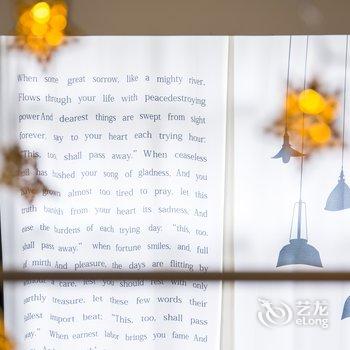 When some great sorrow, like a mighty river,
Flows through your life with peacedestroying
power And dearest things are swept from sight
forever, say to your heart each trying hour:
"This, too, shall pass away." When ceaseless
has hushed your song of gladness, And you
have grown almost too tired to pray, let this
truth banish from your heart its sadness, And
ease the burdens of each trying day: "this, too,
shall pass away." when fortune smiles, and, full
of mirth And pleasure, the days are flitting by
without a care, lest you should rest with only
earthly treasure, let these few words their
fullest import beat: "This, too, shall pass
away." When earnest labor brings you fame And
艺龙
eLong.com